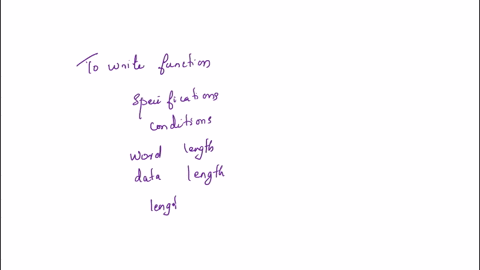 To write function
Specifications
conditions
word length
data length
lengt